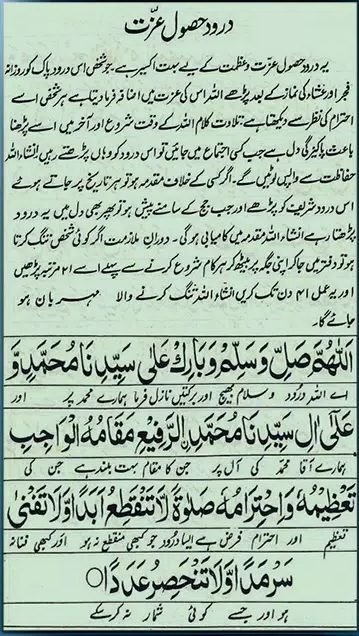 درود حصول عزّت
یہ درود حصول عزت و عظمت کے لیے بہت اکسیر ہے جو شخص اس درود پاک کو روزانہ
فجر اور عشاء کی نماز کے بعد پڑھے اللہ اس کی عزت میں اضافہ فرما دیتا ہے ہر شخص اسے
احترام کی نظر سے دیکھتا ہے تلاوت کلام اللہ کے وقت شروع اور آخر میں اسے پڑھنا
باعث پاکیزگی دل ہے جب کسی اجتماع میں جائیں تو اس درود کو وہاں پڑھتے رہیں انشاء اللہ
حفاظت سے واپس لوٹیں گے۔ اگر کسی کے خلاف مقدمہ ہو تو ہر تاریخ پر جاتے ہوئے
اس درود شریف کو پڑھے اور جب جج کے سامنے پیش ہو تو پھر بھی دل میں یہ درود
پڑھتا رہے انشاء اللہ مقدمہ میں کامیابی ہوگی۔ دوران ملازمت اگر کوئی شخص تنگ کرتا
ہو تو دفتر میں جا کر اپنی جگہ پر بیٹھ کر ہر کام شروع کرنے سے پہلے اسے ۲۱ مرتبہ پڑھیں
اور یہ عمل ۴۱ دن تک کریں انشاء اللہ تنگ کرنے والا مہربان ہو
جائے گا۔
اَللّٰهُمَّ صَلِّ وَسَلِّمْ وَبَارِكْ عَلٰى سَيِّدِنَا مُحَمَّدٍ وَّ
اے اللہ درود و سلام بھیج اور برکتیں نازل فرما ہمارے محمد پر اور
عَلٰٓى اٰلِ سَيِّدِنَا مُحَمَّدِ الرَّفِيْعِ مَقَامُهُ الْوَاجِبِ
ہمارے آقا محمد کی آل پر جن کا مقام بہت بلند ہے جن کی
تَعْظِيْمُهٗ وَاحْتِرَامُهٗ صَلٰوةً لَّا تَنْقَطِعُ اَبَدًا وَّلَا تَفْنٰى
تعظیم اور احترام فرض ہے ایسا درود جو کبھی منقطع نہ ہو اور کبھی فنا نہ
سَرْمَدًا وَّلَا تَنْحَصِرُ عَدَدًا ○
ہو اور جسے کوئی شمار نہ کر سکے